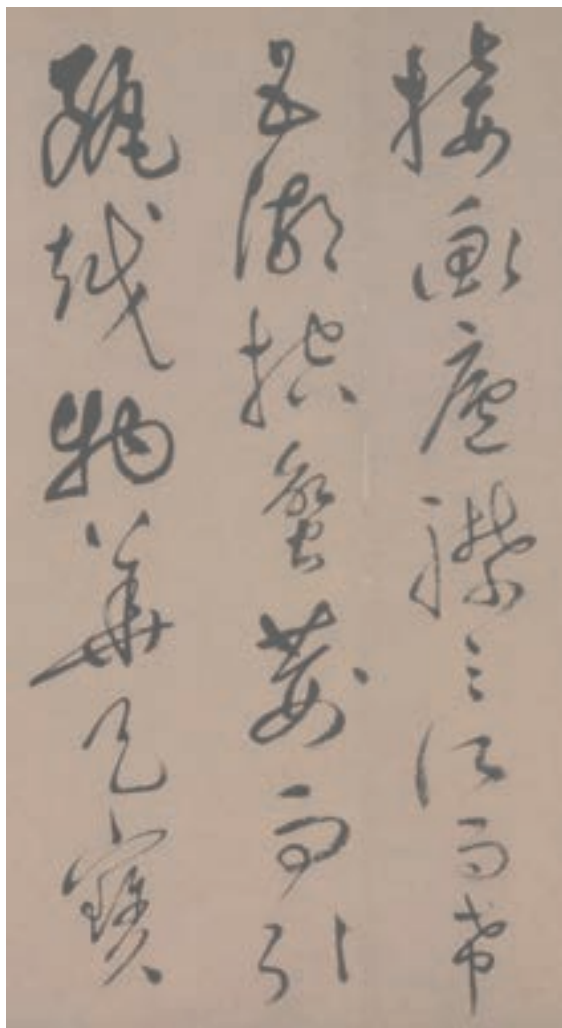 接衡廬襟三江而帶
五湖控蠻荆而引
甌越物華天寶